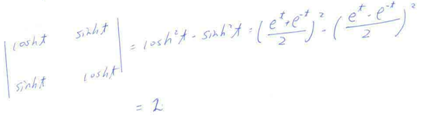 | cosht sinht |
| sinht cosht | = cosh²t - sinh²t = (e^t + e^-t / 2)² - (e^t - e^-t / 2)²
= 2